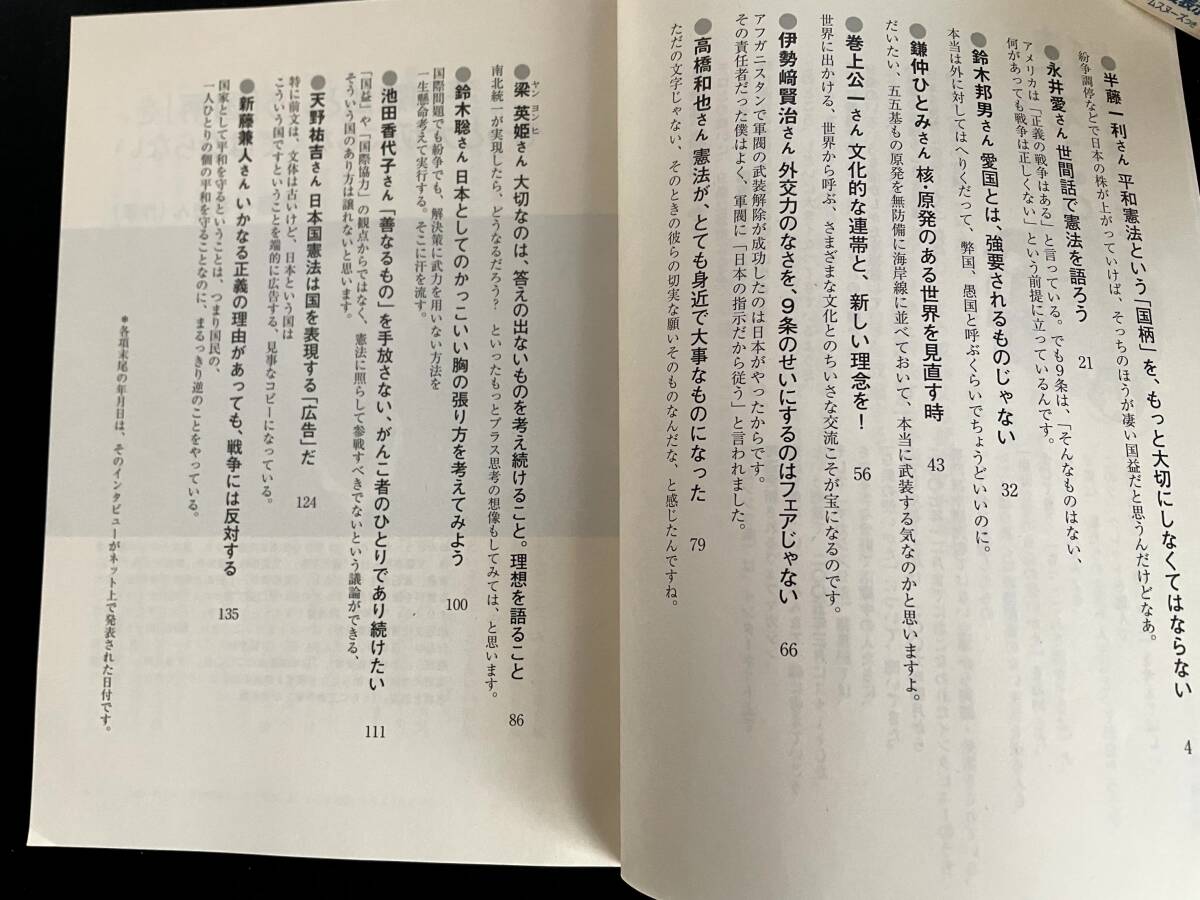 ●半藤一利さん 平和憲法という「国柄」を、もっと大切にしなくてはならない 4
紛争調停などで日本の株が上がっていけば、そっちのほうが凄い国益だと思うんだけどなあ。
●永井愛さん 世間話で憲法を語ろう 21
アメリカは「正義の戦争はある」と言っている。でも9条は、「そんなものはない、
何があっても戦争は正しくない」という前提に立っているんです。
●鈴木邦男さん 愛国とは、強要されるものじゃない 32
本当は外に対してはへりくだって、弊国、愚国と呼ぶくらいでちょうどいいのに。
●鎌仲ひとみさん 核・原発のある世界を見直す時 43
だいたい、五五基もの原発を無防備に海岸線に並べておいて、本当に武装する気なのかと思いますよ。
●巻上公一さん 文化的な連帯と、新しい理念を! 56
世界に出かける、世界から呼ぶ、さまざまな文化とのちいさな交流こそが宝になるのです。
●伊勢﨑賢治さん 外交力のなさを、9条のせいにするのはフェアじゃない 66
アフガニスタンで軍閥の武装解除が成功したのは日本がやったからです。
その責任者だった僕はよく、軍閥に「日本の指示だから従う」と言われました。
●高橋和也さん 憲法が、とても身近で大事なものになった 79
ただの文字じゃない、そのときの彼らの切実な願いそのものなんだな、と感じたんですね。
●梁 英姫さん 大切なのは、答えの出ないものを考え続けること。理想を語ること 86
ヤン ヨンヒ
南北統一が実現したら、どうなるだろう? といったもっとプラス思考の想像もしてみては、と思います。
●鈴木聡さん 日本としてのかっこいい胸の張り方を考えてみよう 100
国際問題でも紛争でも、解決策に武力を用いない方法を
一生懸命考えて実行する。そこに汗を流す。
●池田香代子さん 「善なるもの」を手放さない、がんこ者のひとりであり続けたい 111
「国益」や「国際協力」の観点からではなく、憲法に照らして参戦すべきでないという議論ができる、
そういう国のあり方は譲れないと思います。
●天野祐吉さん 日本国憲法は国を表現する「広告」だ 124
特に前文は、文体は古いけど、日本という国は
こういう国ですということを端的に広告する、見事なコピーになっている。
●新藤兼人さん いかなる正義の理由があっても、戦争には反対する 135
国家として平和を守るということは、つまり国民の、
一人ひとりの個の平和を守ることなのに、まるっきり逆のことをやっている。
＊各項末尾の年月日は、そのインタビューがネット上で発表された日付です。